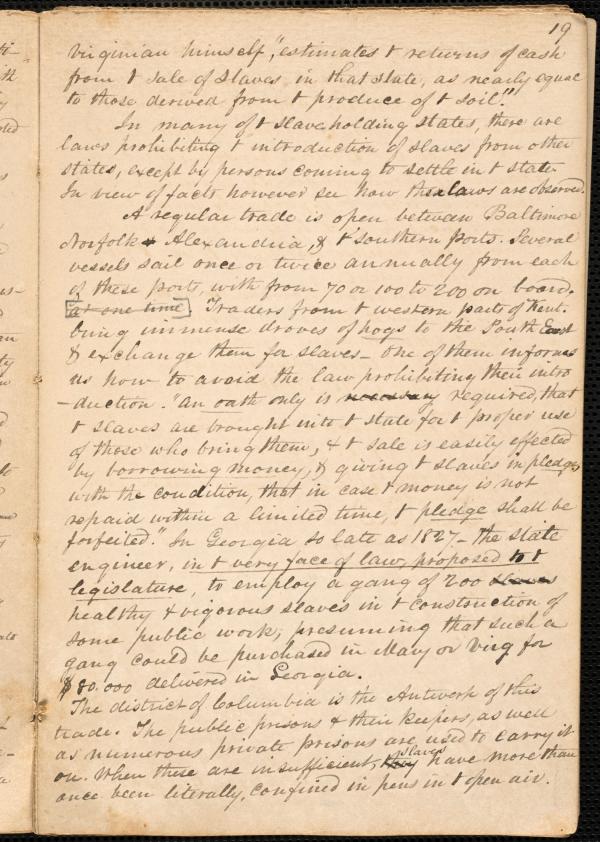 19
virginian himself, "estimates t returns of cash
from t sale of slaves, in that state, as nearly equal
to those derived from t produce of t soil."!
In many of t slaveholding states, there are
laws prohibiting t introduction of slaves from other
states, except by persons coming to settle in t state.
In view of facts however see how these laws are observed.
A regular trade is open between Baltimore
Norfolk & Alexandria, & t southern ports. Several
vessels sail once or twice annually from each
of these ports, with from 70 or 100 to 200 on board.
at one time Traders from t western parts of Kent.
bring immense droves of hogs to the South East
& exchange them for slaves – one of them informs
us how to avoid the law prohibiting their intro
-duction. "an oath only is necessary required, that
t slaves are brought into t state for t proper use
of those who bring them, & t sale is easily effected
by borrowing money, & giving t slaves in pledge,
with the condition, that in case t money is not
repaid within a limited time, t pledge shall be
forfeited." In Georgia so late as 1827 – the state
engineer, in t very face of law, proposed to t
legislature, to employ a gang of 200 slaves
healthy & vigorous slaves in t construction of
some public work, presuming that such a
gang could be purchased in Mary or Virg for
$80.000 delivered in Georgia.
The district of Columbia is the Antwerp of this
trade. The public prisons & their keepers, as well
as numerous private prisons are used to carry it
on. When these are insufficient, they slaves have more than
once been literally, confined in pens in t open air.